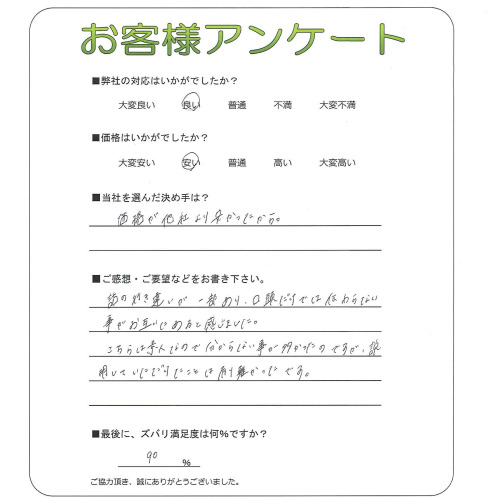 お客様アンケート
■弊社の対応はいかがでしたか？
大変良い 良い 普通 不満 大変不満
■価格はいかがでしたか？
大変安い 安い 普通 高い 大変高い
■当社を選んだ決め手は？
価格が他社より安かったから。
■ご感想・ご要望などをお書き下さい。
違いが 一番あり、口頭だけでは伝わらない
事がお互いにあると感じました。
こちらは素人なので分からない事が多かったのですが、説
明していただけたことは有り難かったです。
■最後に、ズバリ満足度は何％ですか？
90 %
ご協力頂き、誠にありがとうございました。